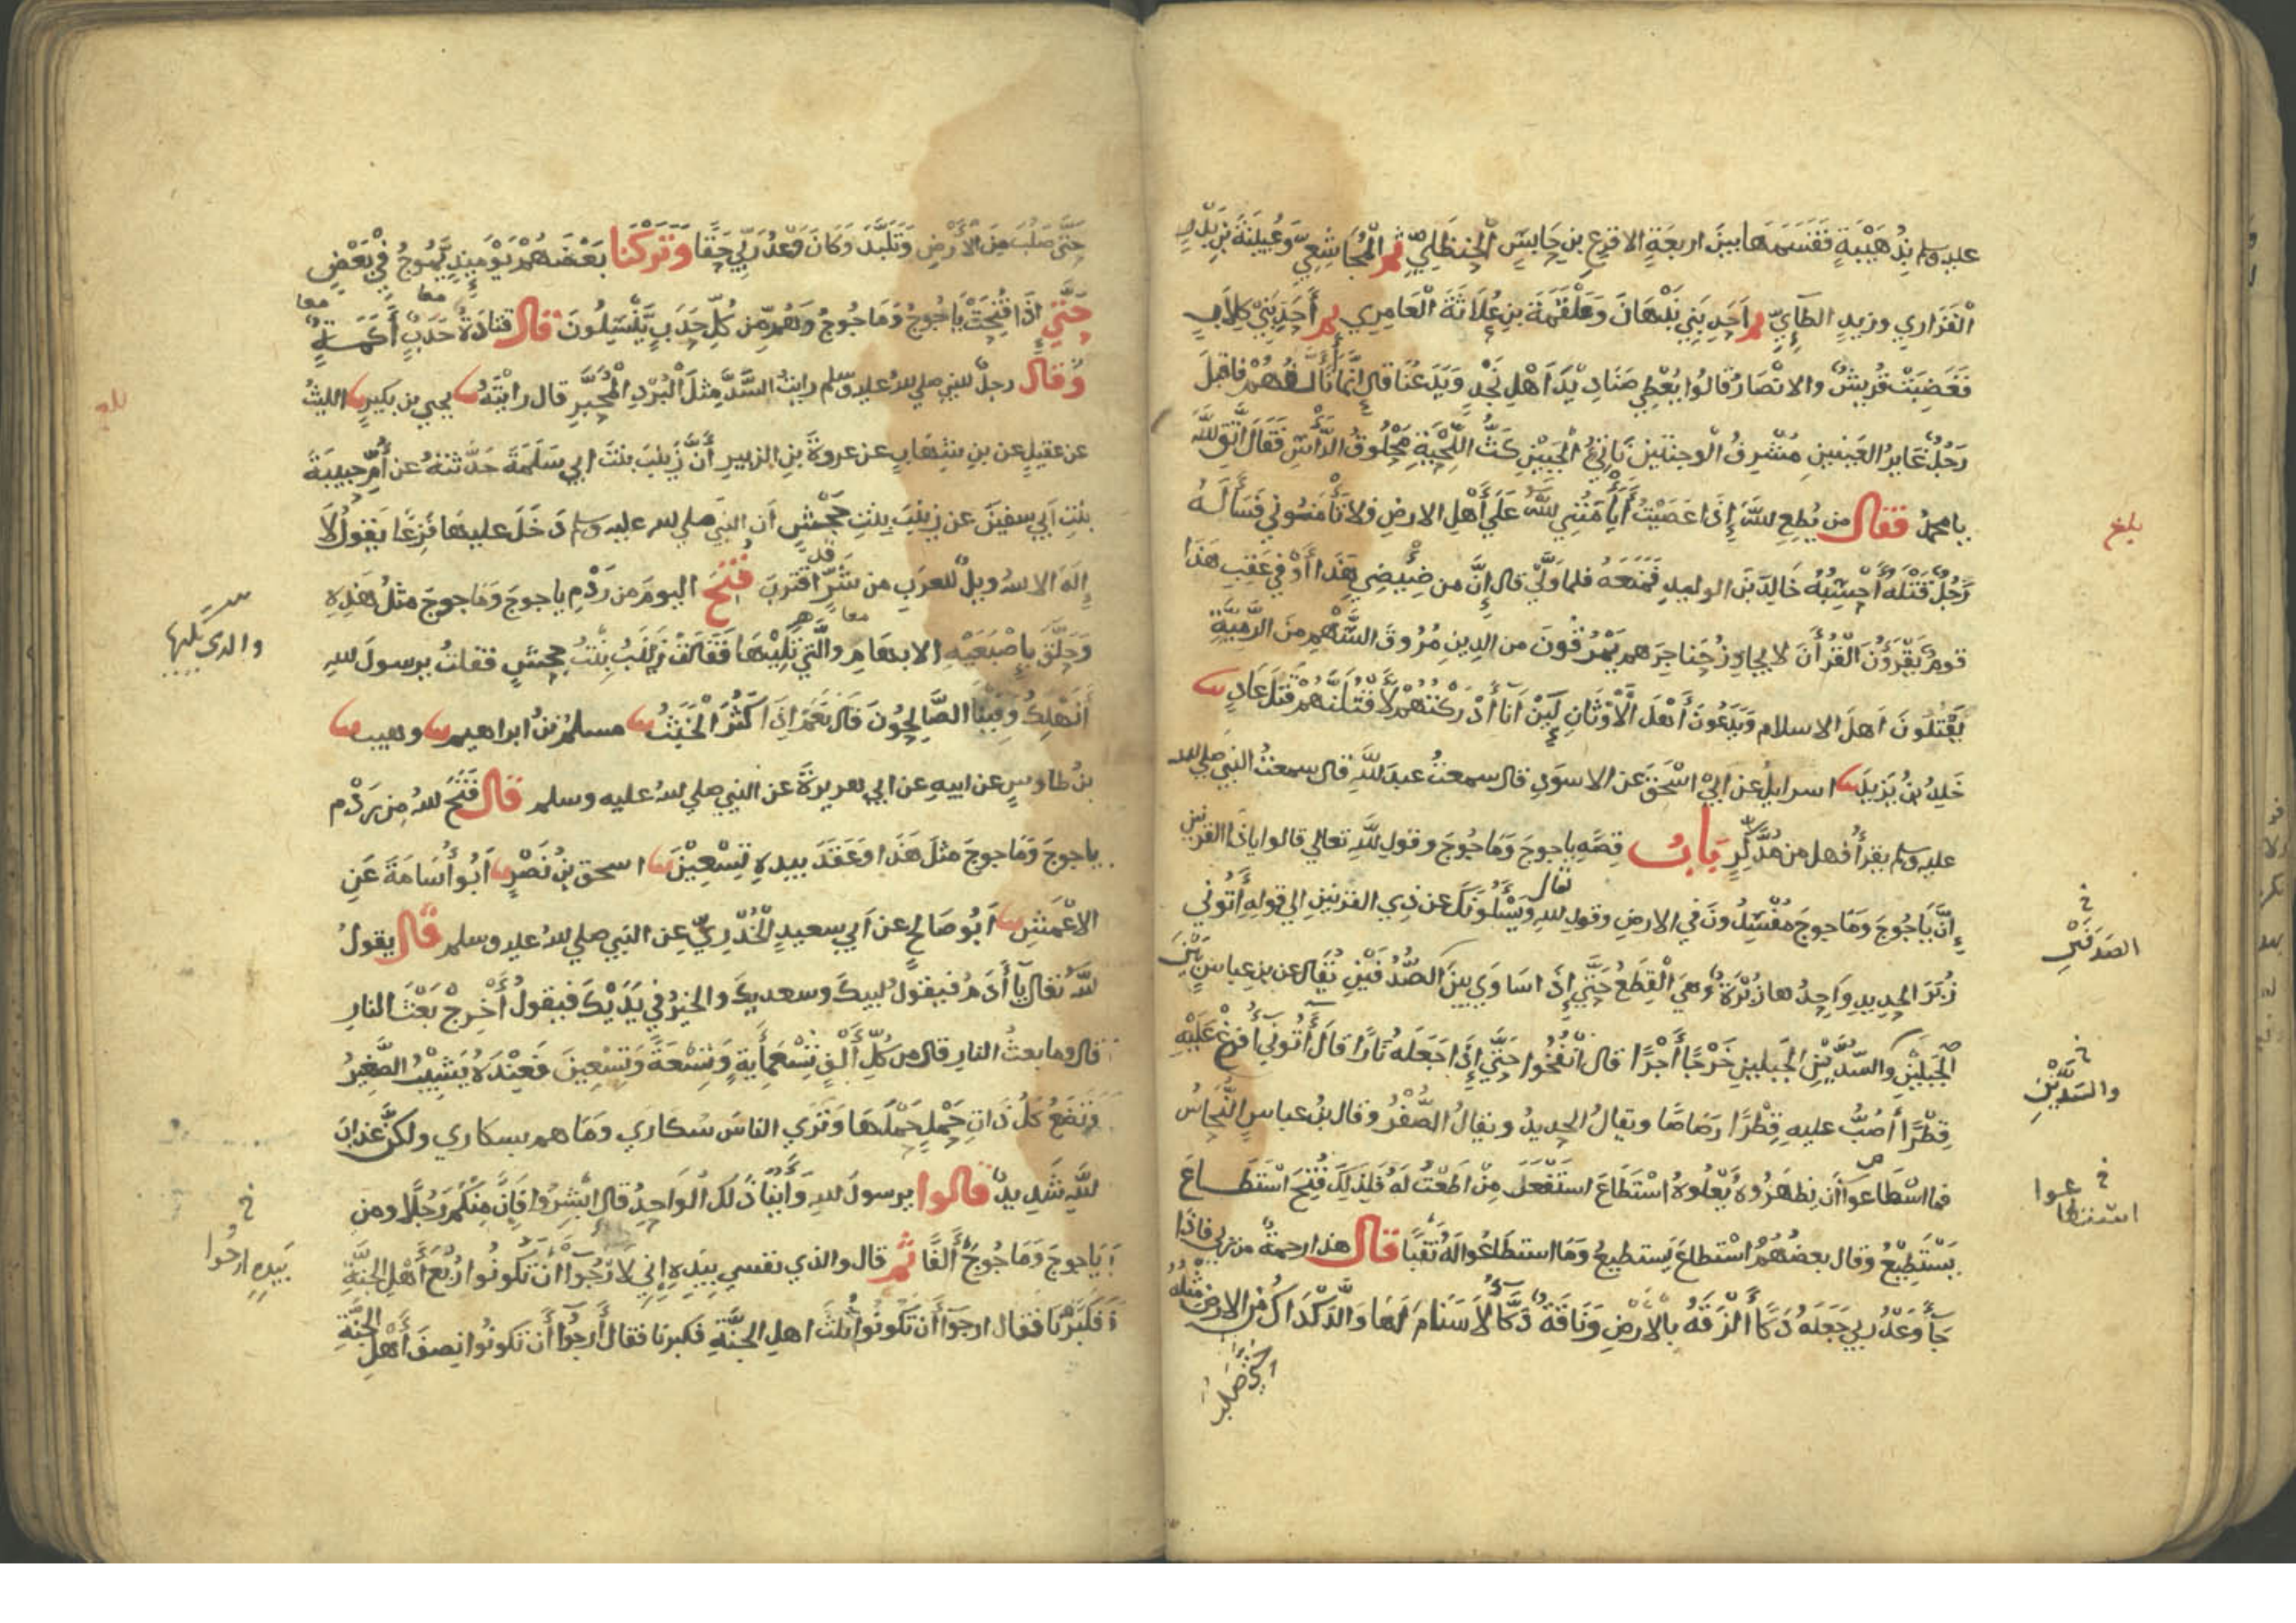 عليه وسلم بِذُهَيْبَةٍ فَقَسَمَهَا بينَ اربعَةٍ الاقرع بنِ حَابسٍ الْحَنظَلِيِّ ثم الْمُجَاشِعِيِّ وَعُيَيْنَةَ بنِ بَدْرٍ
الْفَزَارِي وزيدٍ الطَّآئِيِّ ثم اَحَدِ بَنِي نَبْهَانَ وَعَلْقَمَةَ بنِ عُلَاثَةَ الْعَامِرِي ثم أَحَدِ بَنِي كِلَابٍ
فَغَضِبَتْ قُرَيشٌ والانْصَارُ قَالُوا يُعْطِي صَنَادِيْدَ اَهْلِ نَجْدٍ وَيَدَعُنَا قال إِنَّمَا أَتَأَلَّفُهُمْ فاقبلَ
رَجُلٌ غَايِرُ العَيْنَيْنِ مُشْرِفُ الْوجنتَينِ نَاتِئُ الْجَبِيْنِ كَثُّ اللِّحْيَةِ مَحْلُوقُ الرَّأْسِ فَقَالَ اتَّقِ اللَّهَ
يا محمدُ فقال من يُطِعِ اللهَ إِذَا عَصَيْتُ أَيَأْمَنُنِي اللهُ عَلَى أَهْلِ الارضِ فلا تَأْمَنُونِي فَسَأَلَهُ
رَجُلٌ قَتْلَهُ أَحْسِبُهُ خَالِدَ بنَ الوليدِ فَمَنَعَهُ فلما وَلَّى قال إِنَّ من ضِئْضِئِ هَذَا أَوْ في عَقِبِ هَذَا
قوم يَقْرَؤُنَ الْقُرْأَنَ لا يجاوِزُ حَنَاجِرَهم يَمْرُقُونَ من الدينِ مُرُوقَ السَّهْمِ مِنَ الرَّمِيَّةِ
يَقْتُلُونَ اَهلَ الاسلام وَيَدَعُونَ أَهْلَ الْأَوْثَانِ لَئِنْ أَنَا أَدْرَكْتُهُمْ لَأَقْتُلَنَّهُمْ قَتْلَ عَادٍ
خَلِدُ بْنُ يَزِيدَ اسرايل عن ابي اسْحَقَ عَن الاسوَدِ قال سمعتُ عبدَ اللهِ قال سمعتُ النبي صلى الله
عليه وسلم يقرَأُ فهل من مُدَّكِرٍ بَابُ قِصَّهِ ياجوجَ وَمَاجُوجَ وقولِ اللهِ تعالي قالوا ياذا القرنين
إِنَّ يَاجُوجَ وَمَاجوجَ مُفْسِدُونَ في الارضِ وقولِ اللهِ تعالى وَيَسْئَلُونَكَ عن ذِي القرنينِ الي قولِهِ أَتُونِي
زُبَرَ الحديدِ وَاحِدُها زُبْرَةٌ وَهِيَ الْقِطَعُ حَتَّى إِذَا سَاوَي بينَ الصُّدُفَيْنِ يُقَال عن بنِ عباسٍ بَيْنَ
الْجَبَلَيْنِ والسّدَّيْنِ الجَبلينِ خَرْجًا أَجْرًا قال انْفُخُوا حَتَّى إِذَا جَعَلَه نَارًا قَالَ أَتُونِي أُفْرِغْ عَلَيْهِ
قِطْرًا أَصُبُّ عليهِ قِطْرًا رَصَاصًا ويقالُ الحديدُ ويقالُ الصُّفْرُ وقال بنُ عباسٍ النُّحَاسُ
فما اسْطَاعوا أَن يظهَرُوه يَعْلُوهُ اسْتَطَاعَ استَفْعَلَ مِنْ اَطَعْتُ لَهُ فَلِذَلِكَ فُتِحَ اسْتَطَاعَ
يَسْتَطِيْعُ وَقال بعضُهُمْ اسْتطاعَ يَستطيعُ وَمَا استطَاعُوا لَهُ نَقْبًا قال هذا رحمةٌ من ربي فاذا
جَآءَ وَعْدُ ربي جَعَلَهُ دَكًّا أَلْزَقَهُ بِالْارْضِ وَنَاقَةٌ دَكَّآءُ لَا سَنَامَ لَهَا وَالدَّكْدَاكُ مِنَ الارضِ مثله
حتى صلب
بلغ
خ الصَدَفَيْن
خ والسَّدَّيْنِ
خ استطاعوا
حَتَّى صَلُبَ مِنَ الْأَرْضِ وَتَلَبَّدَ وَكَانَ وَعْدُ رَبِّي حَقًّا وَتَرَكْنَا بَعْضَهُمْ يَوْمَئِذٍ يَّمُوجُ فِي بَعْضٍ
حَتَّى إِذَا فُتِحَتْ يَاجُوجُ وَمَاجُوجُ وَهُم مِّن كُلِّ حَدَبٍ يَّنْسِلُونَ قال قتادَةُ حَدَبٍ أَكَمَةٍ
وَقال رجلٌ للنبي صلى الله عليه وسلم رايتُ السَّدَّ مِثْلَ الْبُرْدِ الْمُحَبَّرِ قال رايْتَهُ يحيي بن بكيرٍ الليثُ
عن عقيلٍ عن بنِ شِهَابٍ عن عروةَ بنِ الزبيرِ أَنَّ زَينَبَ بنتَ ابي سَلَمَةَ حَدَّثتهُ عن أُمِّ حبيبَةَ
بنْتِ اَبي سفينَ عن زينَبَ بنتِ جَحْشٍ أن النبيَ صلى الله عليه وسلم دَخَلَ عليهَا فَزِعًا يَقولُ لَا
إِلهَ الا الله ويلٌ للعرَبِ من شَرٍّ قد اقْتَرَبَ فُتِحَ اليومَ من رَدْمِ ياجوجَ وَمَاجوجَ مثلُ هَذِهِ
وَحَلَّقَ بِاِصْبَعَيْهِ الابهَامِ وَالَّتِي تَلِيْهَا فَقَالَتْ زَيْنَبُ بِنْتُ جحشٍ فقلتُ يرسولَ اللهِ
أَنَهْلِكُ وَفِيْنَا الصَّالِحُونَ قال نَعَمْ اِذَا كَثُرَ الْخَبَثُ مسلمُ بْنُ ابراهيم وهيب
بنُ طاوسٍ عن ابيهِ عن ابي هريرةَ عن النبيِ صلى اللهُ عليه وسلم قال فَتَحَ اللهُ مِن رَدْمِ
ياجوجَ وَمَاجوجَ مثلَ هَذَا وَعَقَدَ بيدهِ تِسْعِيْنَ اسحق بْنُ نَصْرٍ اَبُو أُسَامَةَ عَنِ
الاعْمَشِ اَبُو صَالِحٍ عن أَبي سعيدٍ الْخُدْرِيِّ عن النبي صلى اللهُ عليه وسلم قال يقولُ
اللهُ تعالى يَآ أَدَمُ فيقُولُ لبيكَ وسعديكَ والخيرُ في يَدَيْكَ فيقولُ أَخْرِجْ بَعْثَ النارِ
قال وما بعثُ النارِ قال من كلِّ أَلْفٍ تِسْعَمِائَةٍ وَتِسْعَةً وَتِسْعِينَ فَعِنْدَهُ يَشِيْبُ الصَّغِيرُ
وَتَضَعُ كلُ ذَاتِ حَمْلٍ حَمْلَهَا وَتَرَي الناسَ سُكَارَي وَمَا هم بسكاري ولكنَّ عذابَ
اللهِ شَدِيدٌ قالوا يرسولَ اللهِ وَأَيُّنَا ذَلك الواحِدُ قال أَبْشِرُوا فَإِنَّ مِنْكُمْ رَجُلًا ومن
يَاجوجَ وَمَاجُوجَ أَلْفًا ثم قال والذي نفسي بيَدِهِ إِنِي لارْجُوآ أَنْ تَكونُوا رُبْعَ أَهْلِ الْجَنَّةِ
فَكَبَّرْنَا فقال ارجوآ أَن تكونُوا ثُلُثَ اهلِ الجنَّةِ فكبرنا فقال أَرجُوآ أَن تكونُوا نِصفَ أَهْلِ الْجَنَّةِ
معا
معا
معا
والذي يليها
خ بيَدِهِ ارجُوا